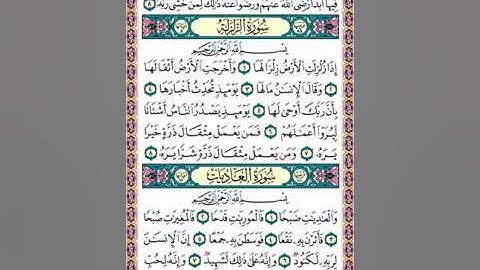 فِيهَآ أَبَدًا رَّضِىَ ٱللَّهُ عَنْهُمْ وَرَضُوا۟ عَنْهُ ذَٰلِكَ لِمَنْ خَشِىَ رَبَّهُۥ ٨
سُورَةُ الزَّلْزَلَةِ
بِسْمِ ٱللَّهِ ٱلرَّحْمَٰنِ ٱلرَّحِيمِ
إِذَا زُلْزِلَتِ ٱلْأَرْضُ زِلْزَالَهَا ١ وَأَخْرَجَتِ ٱلْأَرْضُ أَثْقَالَهَا
٢ وَقَالَ ٱلْإِنسَٰنُ مَا لَهَا ٣ يَوْمَئِذٍ تُحَدِّثُ أَخْبَارَهَا ٤
بِأَنَّ رَبَّكَ أَوْحَىٰ لَهَا ٥ يَوْمَئِذٍ يَصْدُرُ ٱلنَّاسُ أَشْتَاتًا
لِّيُرَوْا۟ أَعْمَٰلَهُمْ ٦ فَمَن يَعْمَلْ مِثْقَالَ ذَرَّةٍ خَيْرًا
يَرَهُۥ ٧ وَمَن يَعْمَلْ مِثْقَالَ ذَرَّةٍ شَرًّا يَرَهُۥ ٨
سُورَةُ العَادِيَاتِ
بِسْمِ ٱللَّهِ ٱلرَّحْمَٰنِ ٱلرَّحِيمِ
وَٱلْعَٰدِيَٰتِ ضَبْحًا ١ فَٱلْمُورِيَٰتِ قَدْحًا ٢ فَٱلْمُغِيرَٰتِ صُبْحًا
٣ فَأَثَرْنَ بِهِۦ نَقْعًا ٤ فَوَسَطْنَ بِهِۦ جَمْعًا ٥ إِنَّ ٱلْإِنسَٰنَ
لِرَبِّهِۦ لَكَنُودٌ ٦ وَإِنَّهُۥ عَلَىٰ ذَٰلِكَ لَشَهِيدٌ ٧ وَإِنَّهُۥ لِحُبِّ